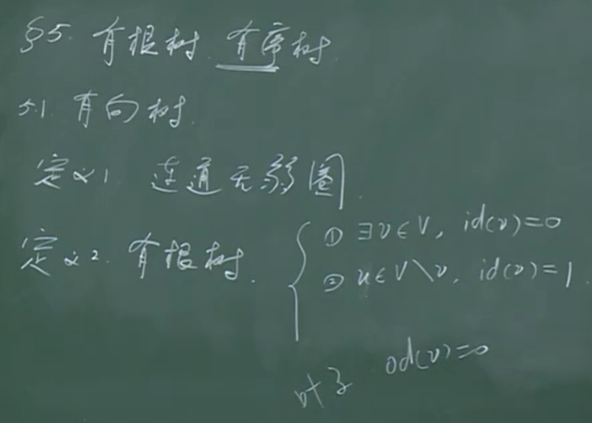 §5. 有根树. 有序树.
5.1. 有向树.
定义1 连通无弱圈.
定义2. 有根树. { ① ∃v∈V, id(v)=0
② u∈V\v, id(v)=1.
叶子 od(v)=0